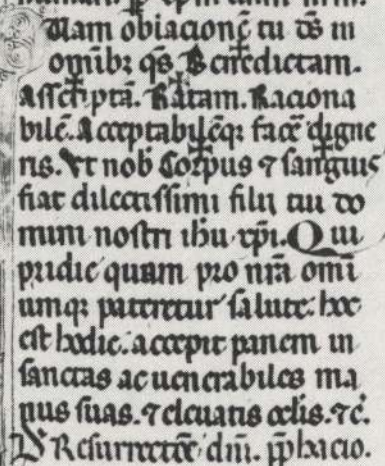 Uam obiacionē tu ds̄ in
omībꝫ q̄s Benedictam.
Ascͥptā. Ratam. Raciona
bilē. Acceptabilēqꝫ facē digne
ris. Vt nob̄ Corpus ⁊ sanguis
fiat dilectissimi filii tui do
mini nostri ihu xp̄i. Qui
pridie quam pro nr̄a omī
umqꝫ pateretur salute. hoc
est hodie. accepit panem in
sanctas ac uenerabiles ma
nus suas. ⁊ eleuatis oclis. ⁊c̄.
Resurrectōē dn̄i. p̄facio.